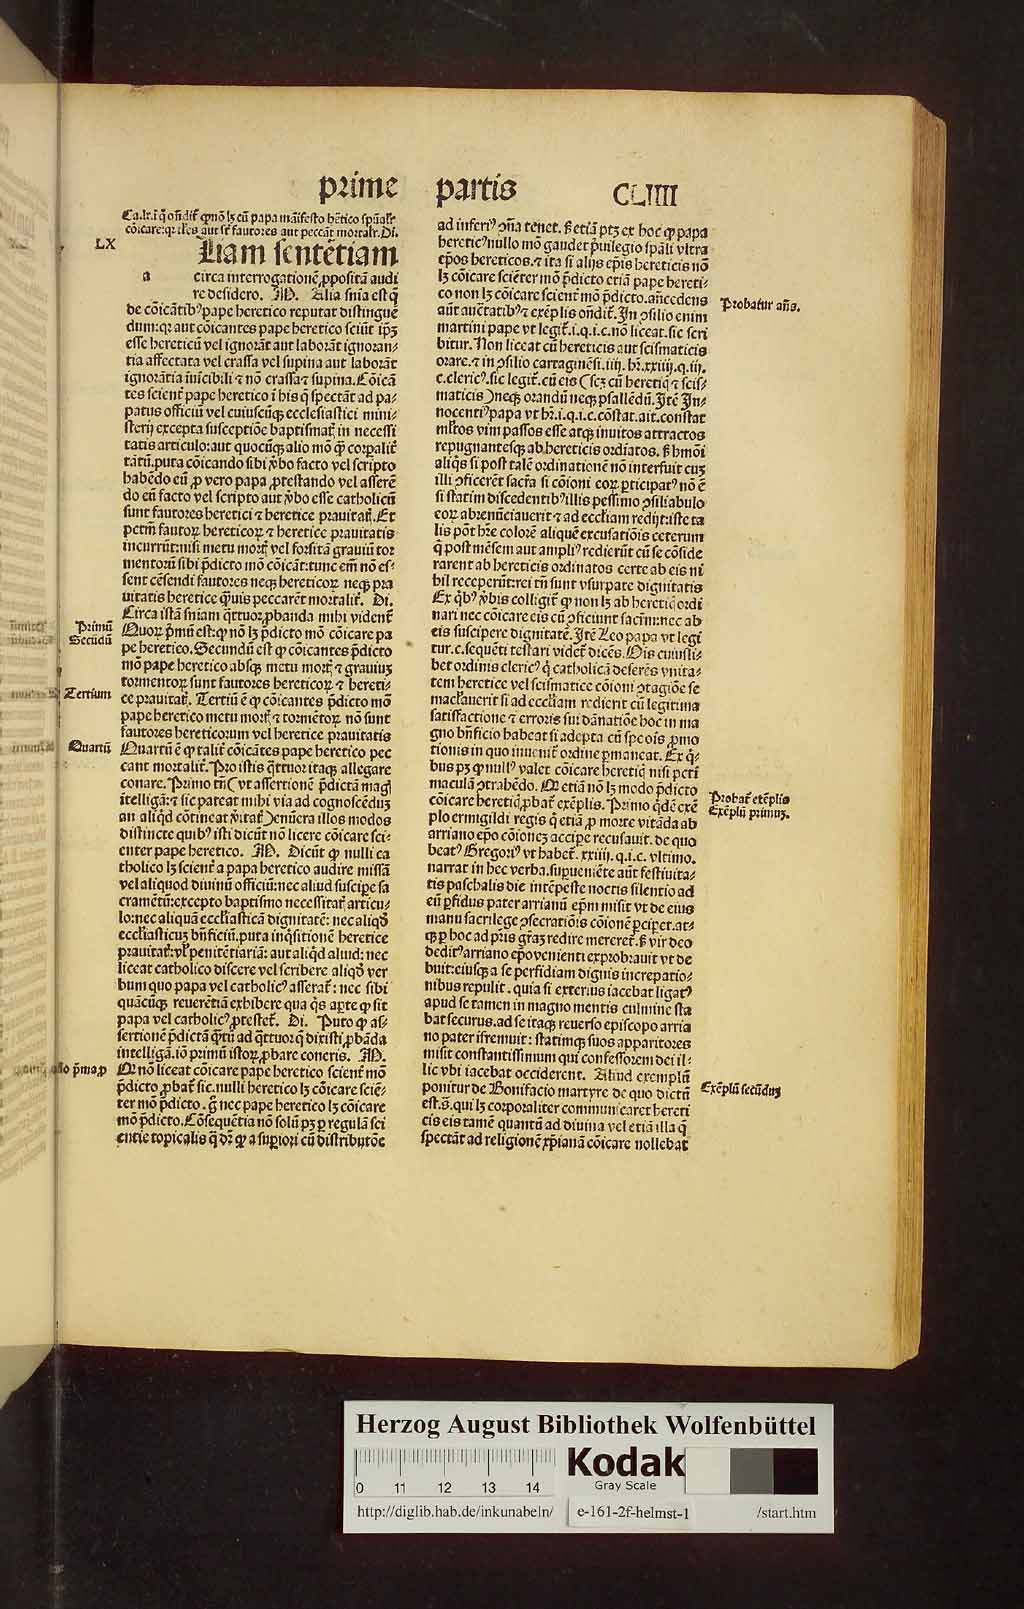 prime partis CLIIII
Ca.lx.ī q̄ oñdit̄ qmō lꝫ cū papa māifesto hētico spūalr̄
cōicare: qr tales aut sūt fautores aut peccāt mortalr̄. Di.
LX
Liam sentētiam
a
circa interrogationē ꝓpositā audi
re desidero. M. Alia sn̄ia est q̄
de cōicātibꝰ pape heretico reputat distinguē
dum: qꝛ aut cōicantes pape heretico sciūt ip̄ꝫ
esse hereticū vel ignorāt aut laborāt ignoran-
tia affectata vel crassa vel supina aut laborāt
ignorātia īuicibili ⁊ nō crassa ⁊ supina. Cōicā
tes scient̄ pape heretico ī his q̄ spectāt ad pa-
patus officiū vel cuiuscūqꝫ ecclesiastici mini-
sterij excepta susceptiōe baptismat̄ in necessi
tatis articulo: aut quocūqꝫ alio mō qꝫ corꝑalit̄
tātū. puta cōicando sibi v̄bo facto vel scripto
habēdo eū ꝓ vero papa ꝓtestando vel asserē
do eū facto vel scripto aut v̄bo esse catholicū
sunt fautores heretici ⁊ heretice prauitat̄. Et
penā fautoꝝ hereticoꝝ ⁊ heretice prauitatis
incurrūt: nisi metu mort̄ vel forsitā grauiū tor
mentorū sibi p̄dicto mō cōicāt: tunc em̄ nō es-
sent cēsendi fautores neqꝫ hereticoꝝ neqꝫ pra
uitatis heretice q̄uis peccarēt mortalit̄. Di.
Circa istā sn̄iam q̄ttuor ꝓbanda mihi vident̄
Primū
Quoꝝ p̄mū est: qꝫ nō lꝫ p̄dicto mō cōicare pa
Secūdū
pe heretico. Secundū est qꝫ cōicantes p̄dicto
mō pape heretico absqꝫ metu mort̄ ⁊ grauiuꝫ
tormentoꝝ sunt fautores hereticoꝝ ⁊ hereti-
Tertium
ce prauitat̄. Tertiū ē qꝫ cōicantes p̄dicto mō
pape heretico metu mort̄ ⁊ tormētoꝝ nō sunt
fautores hereticorum vel heretice prauitatis
Quartū
Quartū ē qꝫ talit̄ cōicātes pape heretico pec
cant mortalit̄. Pro istis q̄ttuor itaqꝫ allegare
conare. Primo tn̄ (vt assertionē p̄dictā maḡ
ītelligā: ⁊ sic pateat mihi via ad cognoscēduꝫ
an aliq̄d cōtineat v̄itat̄) enūera illos modos
distincte quibꝰ isti dicūt nō licere cōicare sci-
enter pape heretico. M. Dicūt qꝫ nulli ca
tholico lꝫ scient̄ a papa heretico audire missā
vel aliquod diuinū officiū: nec aliud suscipe sa
cramētū: excepto baptismo necessitat̄ articu-
lo: nec aliquā ecclīasticā dignitatē: nec aliqd̄
ecclīasticuꝫ bn̄ficiū. puta inq̄sitionē heretice
prauitat̄: vl̄ penitētiariā: aut aliq̄d aliud: nec
liceat catholico discere vel scribere aliqd̄ ver
bum quo papa vel catholicꝰ asserat̄: nec sibi
quācūqꝫ reuerētiā exhibere qua q̄s aꝑte qꝫ sit
papa vel catholicꝰ ꝓtestet̄. Di. Puto qꝫ as-
sertionē p̄dictā q̄tū ad q̄ttuor q̄ dixisti ꝓbāda
intelligā. iō primū istoꝝ ꝓbare coneris. M.
Qꝫ nō liceat cōicare pape heretico scient̄ mō
p̄dicto ꝓbat̄ sic. nulli heretico lꝫ cōicare sciē-
ter mō p̄dicto. g̊ nec pape heretico lꝫ cōicare
mō p̄dicto. Cōsequētia nō solū pꝫ ꝑ regulā sci
entie topicalis q̄ dꝛ qꝫ a suꝑiori cū distributōe
ad inferiꝰ ꝯn̄a tenet. sꝫ etiā ptꝫ ex hoc qꝫ papa
hereticꝰ nullo mō gaudet p̄uilegio spāli vltra
ep̄os hereticos. ⁊ ita si alijs ep̄is hereticis nō
lꝫ cōicare sciēter mō p̄dicto etiā pape hereti-
co non lꝫ cōicare scient̄ mō p̄dicto. an̄cedens
Probatur an̄s.
aūt auc̄tatibꝰ ⁊ exēplis on̄dit̄. In ꝯsilio enim
martini pape vt legit̄. i. q. i. c. nō liceat. sic scri
bitur. Non liceat cū hereticis aut scismaticis
orare. ⁊ in ꝯsilio cartaginēsi. iiij. hꝛ. xxiiij. q. iij.
c. clericꝰ. sic legit̄. cū eis (scꝫ cū heretic̄ ⁊ scis-
maticis) neqꝫ orandū neqꝫ psallēdū. Itē In-
nocentiꝰ papa vt hꝛ. i. q. i. c. cōstat. ait. constat
ml̄tos vim passos esse atqꝫ inuitos attractos
repugnantesqꝫ ab hereticis ordīatos. sꝫ hmōi
aliq̄s si post talē ordinationē nō interfuit cuꝫ
illi ꝯficerēt sacr̄a si cōioni eoꝝ ꝑticipatꝰ nō ē
si statim discedentibꝰ illis pessimo ꝯsiliabulo
eoꝝ abrenūciauerit ⁊ ad ecclīam redijt: iste ta
lis pōt hr̄e colorē aliquē excusatiōis ceterum
q̄ post mēsem aut ampliꝰ redierūt cū se cōside
rarent ab hereticis ordinatos certe ab eis ni
hil receperūt: rei tn̄ sunt vsurpate dignitatis
Ex q̄bꝰ v̄bis colligit̄ qꝫ non lꝫ ab heretic̄ ordi
nari nec cōicare eis cū ꝯficiunt sacr̄m: nec ab
eis suscipere dignitatē. Itē Leo papa vt legi
tur. c. sequēti testari videt̄ dicēs. Ois cuiusli-
bet ordinis clericꝰ q̄ catholicā deserēs vnita-
tem heretice vel scismatice cōioni ꝯtagiōe se
macl̄auerit si ad ecclīam redierit cū legitima
satisfactione ⁊ erroris sui dānatiōe hoc in ma
gno bn̄ficio habeat si adepta cū spe ois ꝓmo
tionis in quo inuenit̄ ordine ꝑmaneat. Ex q̄-
bus pꝫ qꝫ nullꝰ valet cōicare heretic̄ nisi pctī
maculā ꝯtrahēdo. Qꝫ etiā nō lꝫ modo p̄dicto
cōicare heretic̄ ꝓbat̄ exēplis. Primo q̄dē exē
Probat̄ exēplis
Exēplū primuꝫ.
plo ermigildi regis q̄ etiā ꝓ morte vitāda ab
arriano ep̄o cōioneꝫ accipe recusauit. de quo
beatꝰ Gregoriꝰ vt habet̄. xxiiij. q. i. c. vltimo.
narrat in hec verba. suꝑueniēte aūt festiuita-
tis paschalis die intēpeste noctis silentio ad
eū ꝑfidus pater arrianū ep̄m misit vt de eius
manu sacrilege ꝯsecratiōis cōionē ꝑcipet. at-
qꝫ ꝑ hoc ad pr̄is gr̄aꝫ redire mereret̄. sꝫ vir deo
deditꝰ arriano ep̄o venienti exprobrauit vt de
buit: eiusqꝫ a se perfidiam dignis increpatio-
nibus repulit. quia si exterius iacebat ligatꝰ
apud se tamen in magno mentis culmine sta
bat securus. ad se itaqꝫ reuerso episcopo arria
no pater ifremuit: statimqꝫ suos apparitores
misit constantissimum qui confessorem dei il-
lic vbi iacebat occiderent. Aliud exemplū
Exēplū secūduꝫ
ponitur de Bonifacio martyre de quo dictū
est. s̄. qui lꝫ corporaliter communicaret hereti
cis eis tamē quantū ad diuina vel etiā illa q̄
spectāt ad religionē xp̄ianā cōicare nollebat
Herzog August Bibliothek Wolfenbüttel
0 11 12 13 14
Kodak
Gray Scale
http://diglib.hab.de/inkunabeln/ e-161-2f-helmst-1 /start.htm